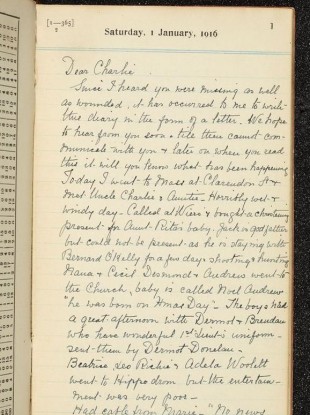 [1—365]
2
Saturday, 1 January, 1916
1
Dear Charlie.
Since I heard you were missing as well
as wounded, it has occurred to me to write
this diary in the form of a letter. We hope
to hear from you soon & till then cannot com-
municate with you & later on when you read
this it will you know what has been happening
Today I went to Mass at Clarendon St &
met Uncle Charlie & Auntie - Horribly wet &
windy day - Called at Wiers & bought a christening
present for Aunt Rita's baby. Jack is godfather
but could not be present as he is staying with
Bernard O'Kelly for a few days shooting & hunting
Nana & Cecil Desmond & Andrew went to
the Church. baby is called Noel Andrew
"he was born on Xmas Day" - The boys had
a great afternoon with Dermot & Brendan
who have wonderful 1st Lieut's uniform -
sent them by Dermot Donelan -
Beatrice, Leo Richie & Adela Woolett
went to Hippodrom but the entertain-
ment was very poor -
Had cable from Maria - "No news